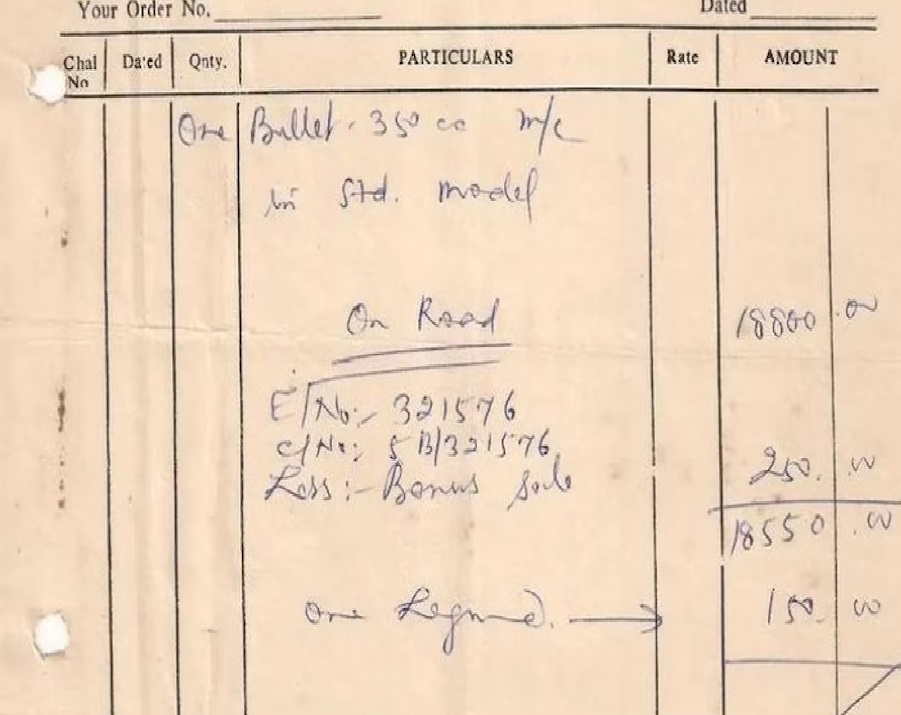 Your Order No. Dated
Chal No Dated Qnty. PARTICULARS Rate AMOUNT
One Bullet. 350 cc m/c
in Std. model
On Road 18800.00
E/No:- 321576
C/No:; 5B/321576
Less:- Bonus sale 250.00
18550.00
One Legguard. 150.00